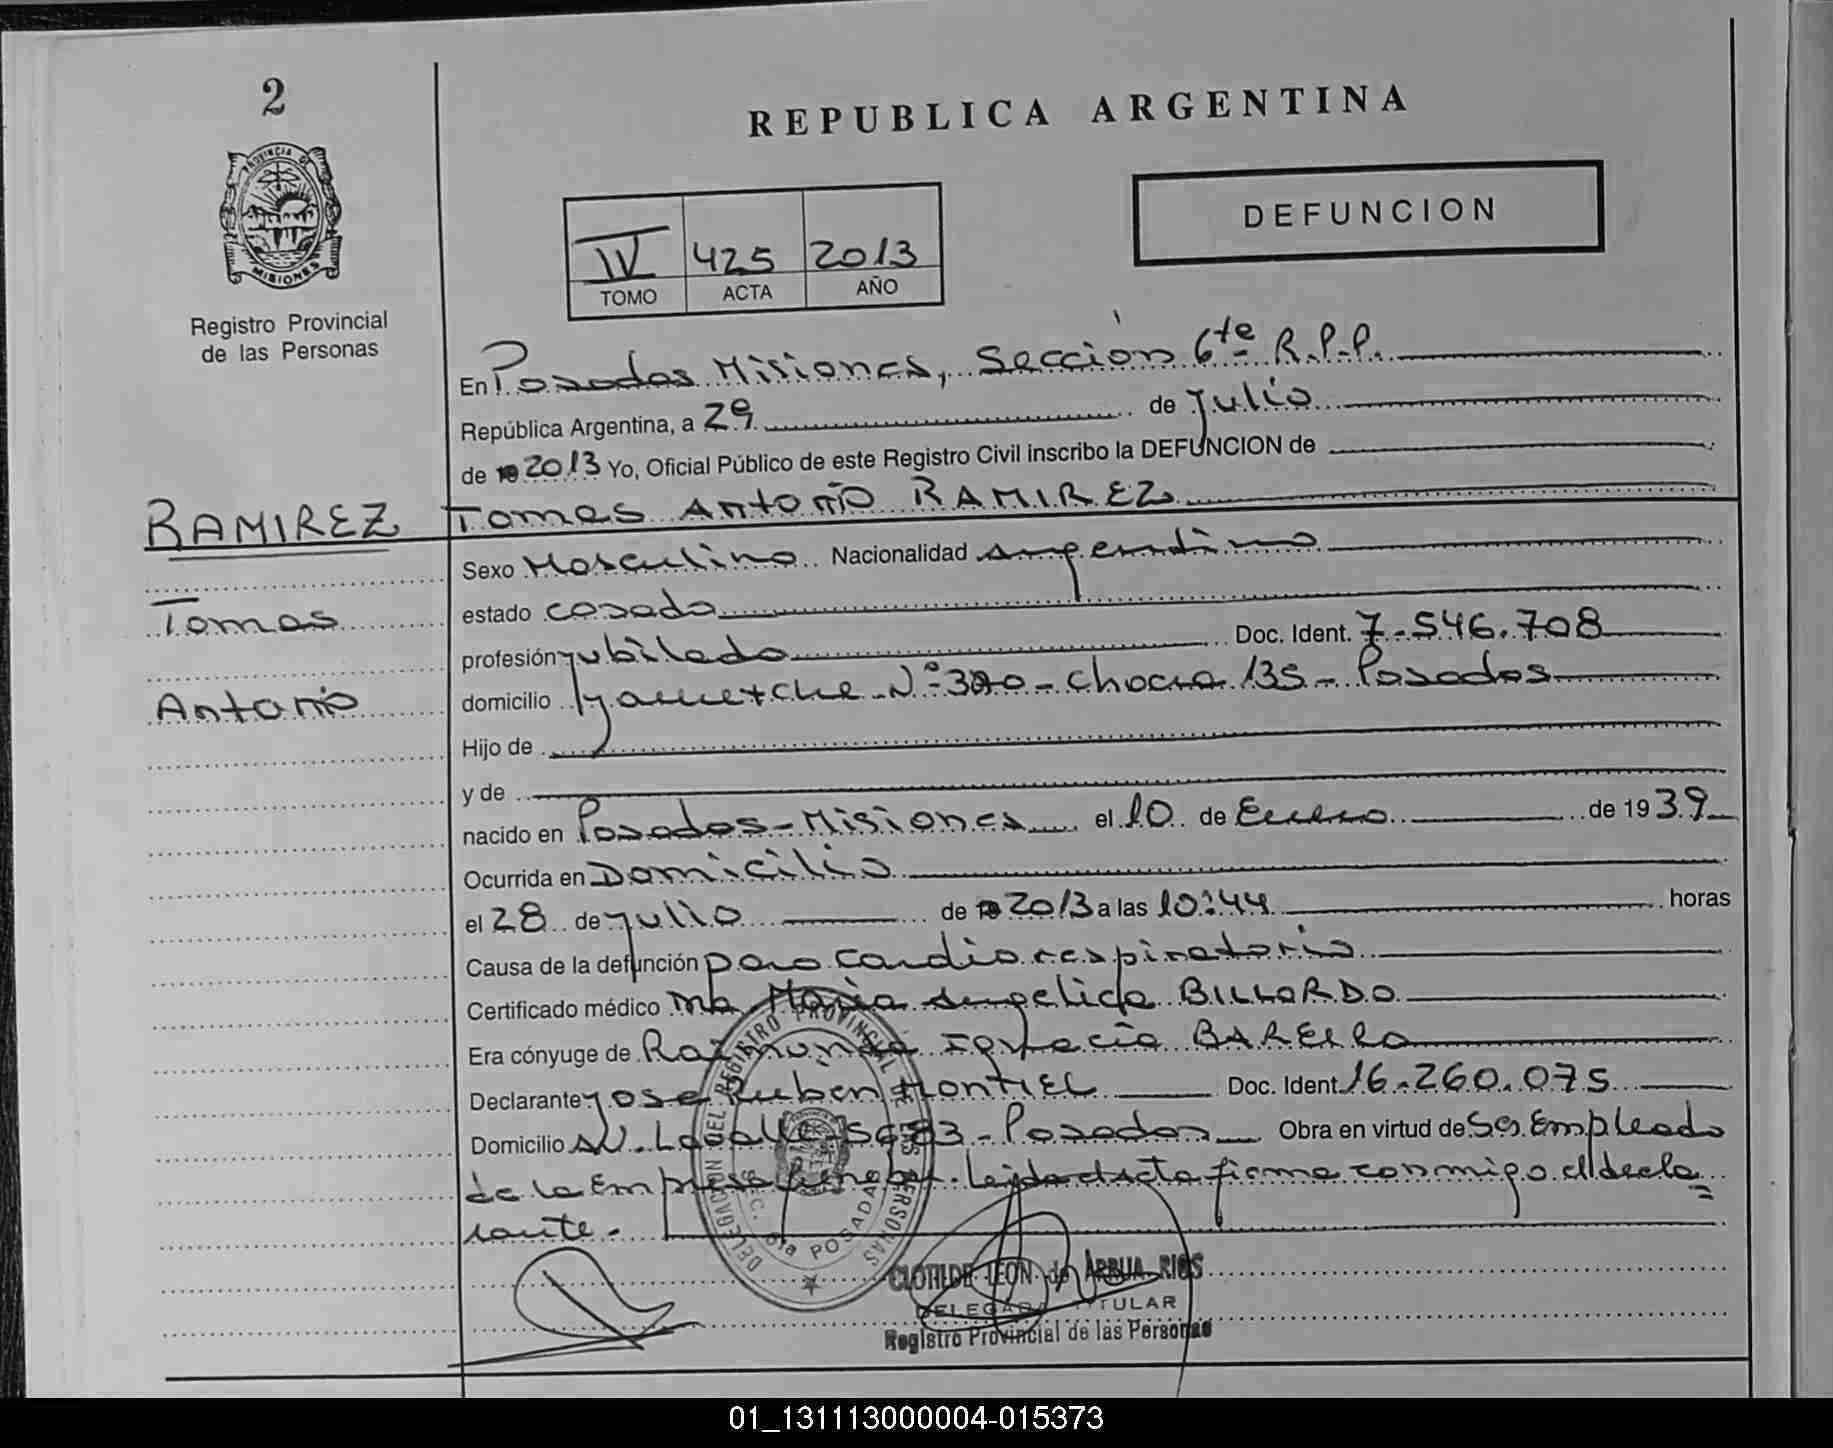 2
PROVINCIA DE
MISIONES
Registro Provincial
de las Personas
REPUBLICA ARGENTINA
IV 425 2013
TOMO ACTA AÑO
DEFUNCION
En Posadas Misiones, Sección 6te R.P.P.
República Argentina, a 29 de Julio
de 2013 Yo, Oficial Público de este Registro Civil inscribo la DEFUNCION de
RAMIREZ
Tomas Antonio RAMIREZ
Tomas
Antonio
Sexo Masculino Nacionalidad argentino
estado casado
profesión jubilado Doc. Ident. 7.546.708
domicilio N° chacra 135 - Posadas
Hijo de
y de
nacido en Posadas - Misiones el 10 de Enero de 1939
Ocurrida en Domicilio
el 28 de julio de 2013 a las 10:44 horas
Causa de la defunción paro cardio respiratorio
Certificado médico Maria Angelica BILLORDO
Era cónyuge de Raimunda Ignacia BAREIRO
Declarante Jose Ruben MONTIEL Doc. Ident. 16.260.075
Domicilio AV. Lavalle - Posadas Obra en virtud de Ser Empleado
de la Empresa funebre. Leida el acta firma conmigo el decla=
rante.
DELEGACION DEL REGISTRO PROVINCIAL DE LAS PERSONAS
SEC. 6ta POSADAS
CLOTILDE LEON de ARRUA RIOS
DELEGADA TITULAR
Registro Provincial de las Personas
01_131113000004-015373